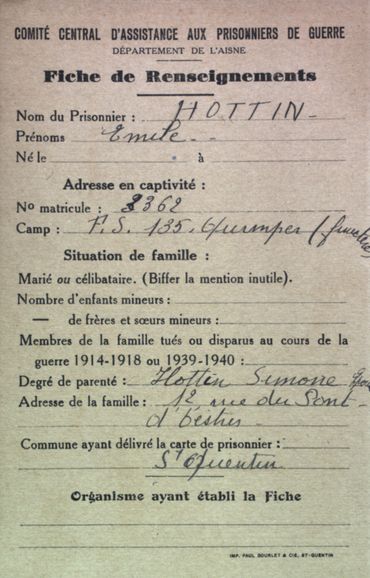 COMITÉ CENTRAL D'ASSISTANCE AUX PRISONNIERS DE GUERRE
DÉPARTEMENT DE L'AISNE
Fiche de Renseignements
Nom du Prisonnier : HOTTIN
Prénoms Emile
Né le à
Adresse en captivité :
No matricule : 2362
Camp : F.S. 135. Quimper
Situation de famille :
Marié ou célibataire. (Biffer la mention inutile).
Nombre d'enfants mineurs :
— de frères et sœurs mineurs :
Membres de la famille tués ou disparus au cours de la
guerre 1914-1918 ou 1939-1940 :
Degré de parenté : Hottin Simone
Adresse de la famille : 12 rue du Pont
Commune ayant délivré la carte de prisonnier :
St Quentin
Organisme ayant établi la Fiche
IMP. PAUL DOURLET & CIE, ST-QUENTIN